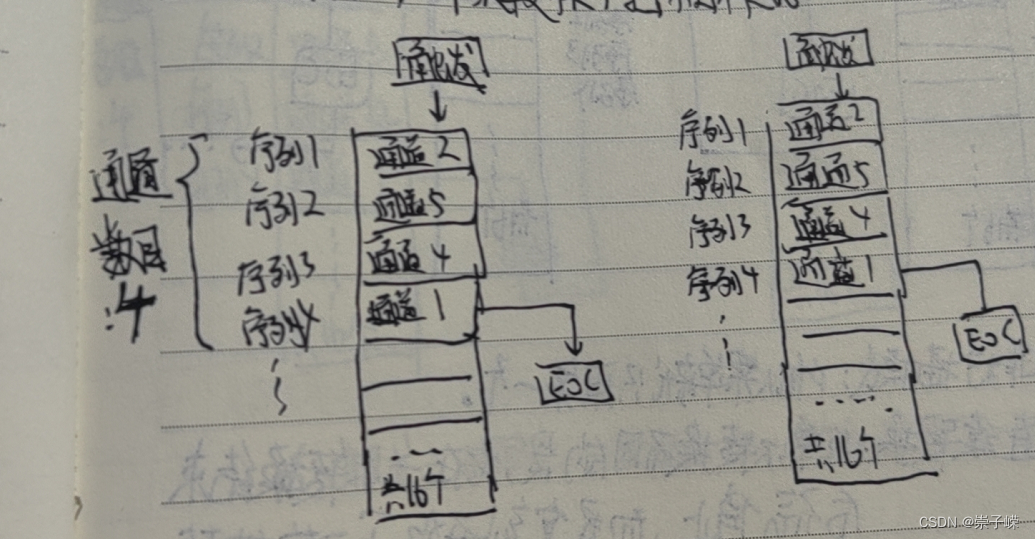 触发
触发
通道
数目
:4
序列1
序列2
序列3
序列4
通道2
通道5
通道4
通道1
EOC
...
共16个
序列1
序列2
序列3
序列4
通道2
通道5
通道4
通道1
EOC
.....
共16个
CSDN @崇子嵘